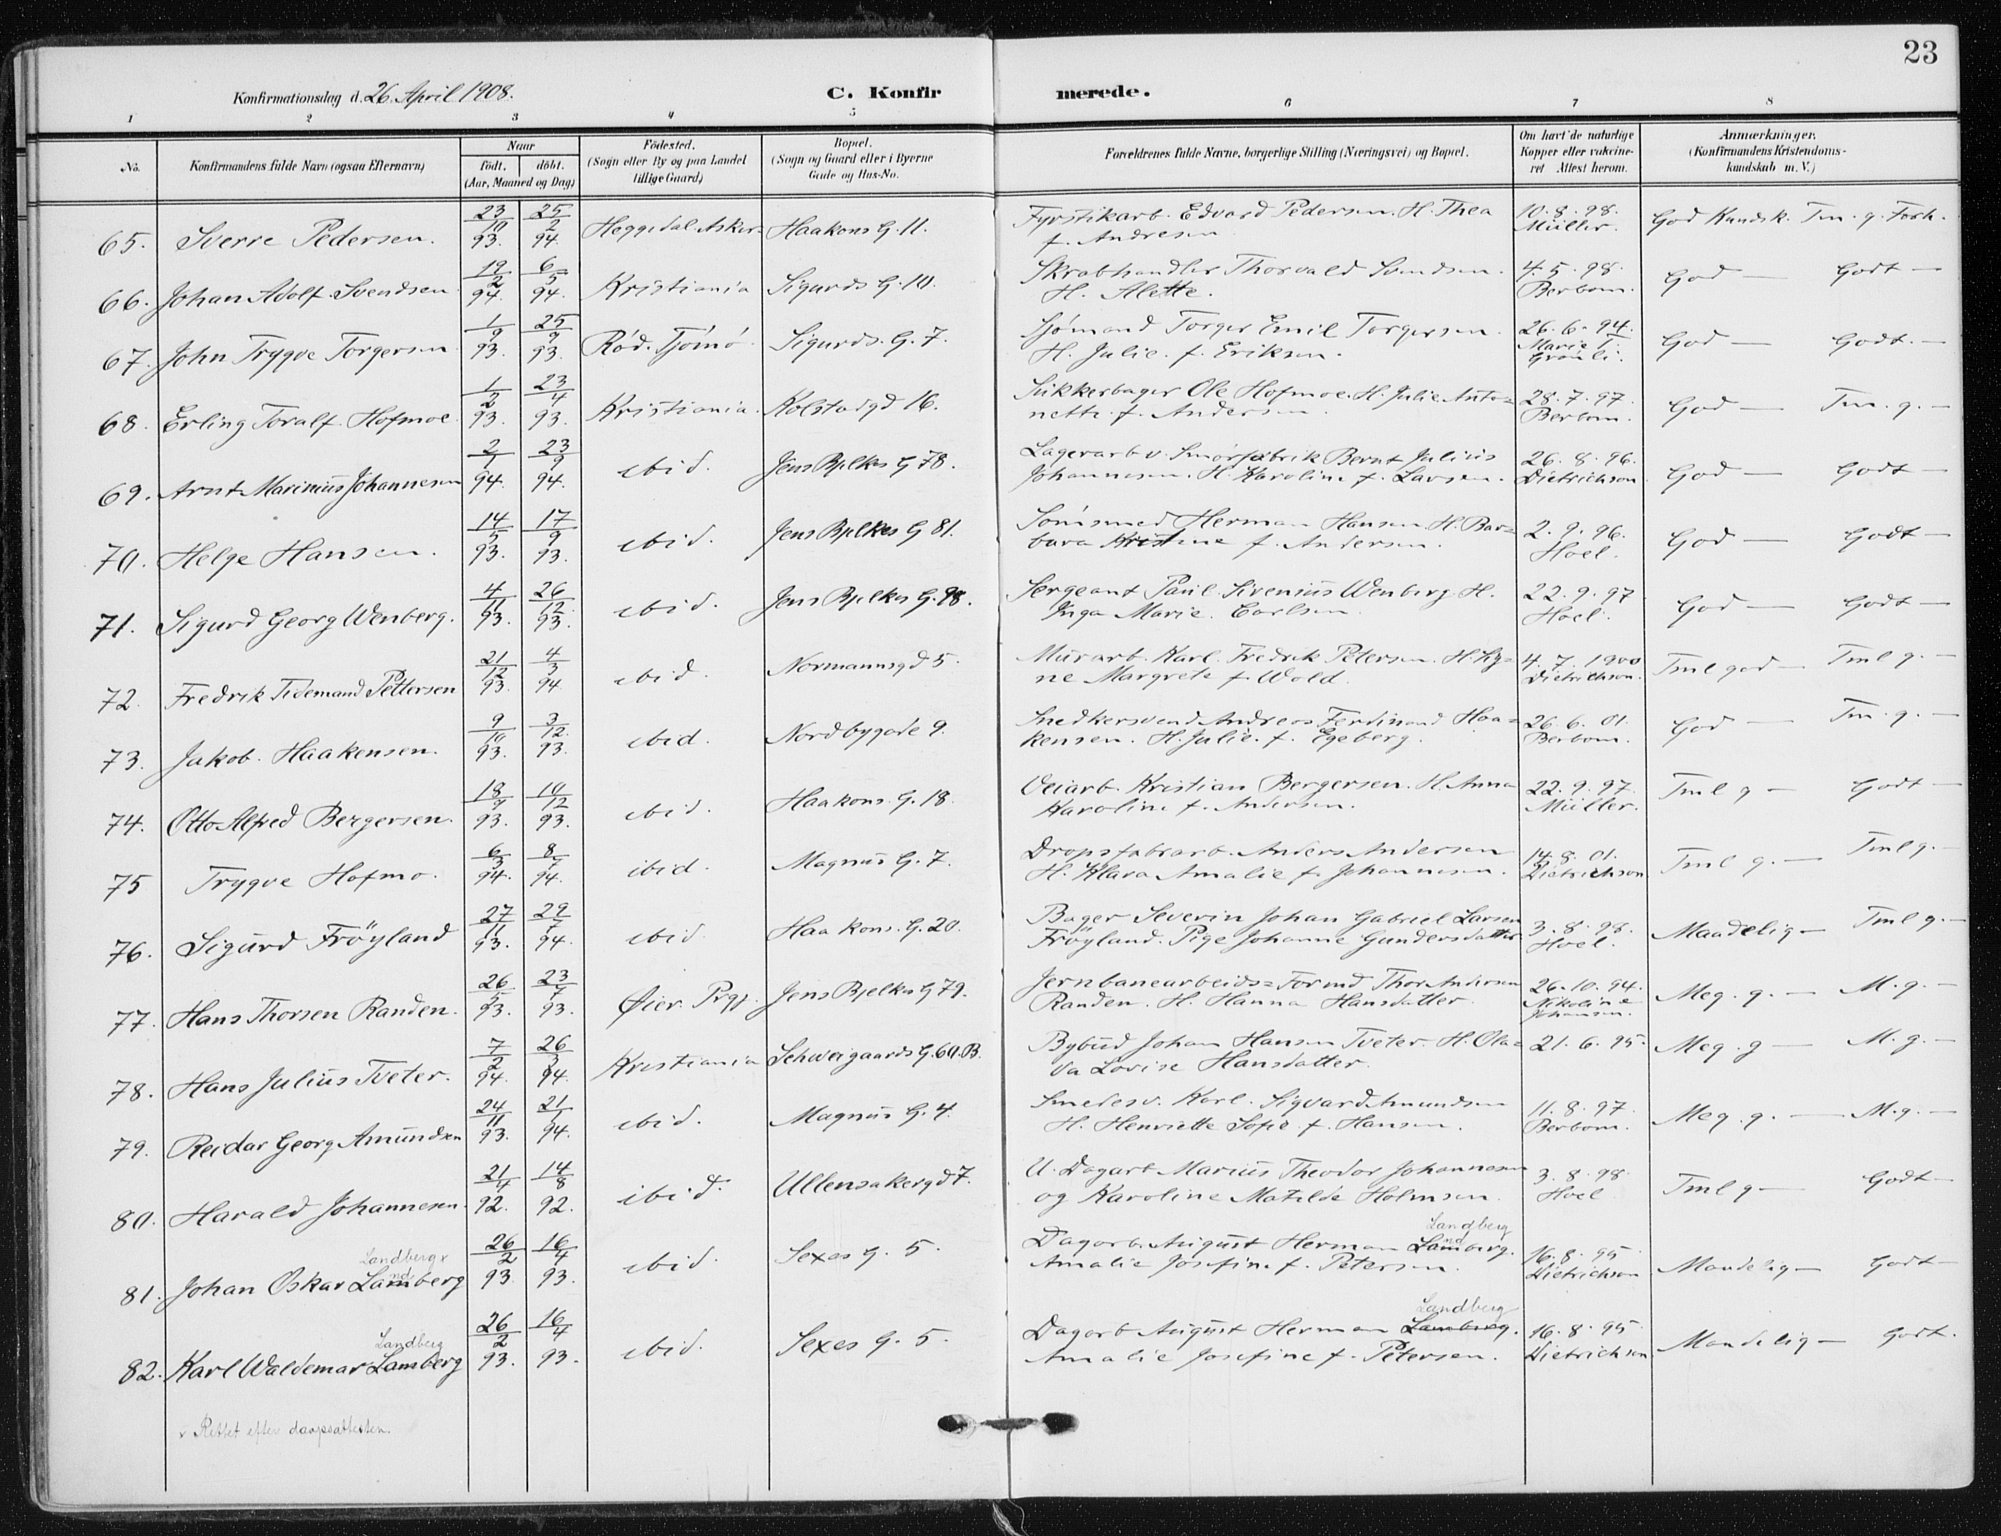 23
Konfirmationsdag d. 26 April 1908. C. Konfir merede.
1 2 3 4 5 6 7 8
No. Konfirmandens fulde Navn (ogsaa Efternavn) Naar født. døbt. (Aar, Maaned og Dag) Fødested. (Sogn eller By og paa Landet tillige Gaard) Bopæl. (Sogn og Gaard eller i Byerne Gade og Hus-No. Forældrenes fulde Navne, borgerlige Stilling (Næringsvei) og Bopæl. Om havt de naturlige Kopper eller vaksineret Attest herom. Anmærkninger. (Konfirmandens Kristendomskundskab m. V.)
65. Sverre Pedersen. 23/10 93. 25/2 94. Heggedal Asker Haakons G. 11. Fyrstikarb. Edvard Pedersen. H. Thea f. Andresen 10.8.98. Müller. God Kundsk. Tm. g. Forh.
66. Johan Adolf Svendsen 19/2 94. 6/5 94. Kristiania Sigurds G. 10. Skrabhandler Thorvald Svendsen. H. Alette. 4.5.98. Berbom. God — Godt —
67. John Trygve Torgersen 1/9 93. 25/9 93. Rød. Tjømø Sigurds. G. 7. Sjømand Torger Emil Torgersen. H. Julie. f. Eriksen. 26.6.94. Marie T. Grønli. God — Godt. —
68. Erling Toralf Hofmoe. 1/2 93. 23/4 93. Kristiania. Kolstadgd 16. Sukkerbager Ole Hofmoe. H. Julie Antonette. f. Andersen 28.7.97. Berbom. God — Tm. g. —
69. Arnt Marinius Johannesen 2/1 94. 23/9 94. ibid. Jens Bjelkes G 78. Lagerarb v. Smørfabrik Bernt Julius Johannesen. H. Karoline f. Larsen. 26.8.96. Dietrichson God — Godt —
70. Helge Hansen. 14/5 93. 17/9 93. ibid. Jens Bjelkes G 81. Sømsmed Herman Hansen. H. Barbara Kristine f. Andersen. 2.9.96. Hoel. God — Godt —
71. Sigurd Georg Wenberg. 4/11 93. 26/12 93. ibid. Jens Bjelkes G. 98. Sergeant Paul Sirenius Wenberg. H. Inga Marie. Carlsen. 22.9.97 Hoel. God — Godt —
72. Fredrik Tidemand Pettersen 21/12 93. 4/3 94. ibid. Normannsgd 5. Murarb. Karl Fredrik Petersen. H. Signe Margrete f. Wold. 4.7.1900 Dietrichson. Tml god — Tml g. —
73. Jakob. Haakensen. 9/10 93. 3/12 93. ibid. Nordbygade 9. Snedkersvend Andreas Ferdinand Haakensen. H. Julie. f. Egeberg. 26.6.01. Berbom. God — Tm. g. —
74. Otto Alfred Bergersen. 18/9 93. 10/12 93. ibid. Haakons G. 18. Veiarb. Kristian Bergersen. H. Anna Karoline f. Andersen. 22.9.97. Müller. Tml g — Godt —
75 Trygve Hofmo. 6/3 94. 8/7 94. ibid. Magnus G. 7. Dropsfabrarb. Anders Andersen H. Klara Amalie f. Johannesen. 14.8.01. Dietrichson Tml g. — Tml g. —
76. Sigurd Frøyland 27/11 93. 29/7 94. ibid Haakons. G. 20. Bager Severin Johan Gabriel Larsen Frøyland. Pige Johanne Gundersdatter 3.8.98. Hoel. Maadelig — Tml g. —
77. Hans Thorsen Randen. 26/5 93. 23/7 93. Øier Prgj. Jens Bjelkes G 79. Jernbanearbeids-Formd Thor Andersen Randen. H. Hanna Hansdatter. 26.10.94. Nikoline Johansen. Meg. g. — M. g. —
78. Hans Julius Tveter. 7/2 94. 26/3 94. Kristiania Schweigaards G. 60. B. Bybud Johan Hansen Tveter. H. Olava Lovise Hansdatter. 21.6.95. Meg. g — M. g. —
79. Reidar Georg Amundsen 24/11 93. 21/1 94. ibid. Magnus G. 4. Smedesv. Karl. Sigvard Amundsen H. Henriette Sofie f. Hansen. 11.8.97. Berbom. Meg. g. — M. g. —
80. Harald Johannesen. 21/4 92. 14/8 92. ibid. Ullensakergd 7. U. Dagarb Marius Theodor Johannesen og Karoline Matilde Holmsen. 3.8.98. Hoel Tml g — Godt —
81. Johan Oskar Lamberg Landberg v nd 26/2 93. 16/4 93. ibid. Sexes G. 5. Dagarb. August Herman Lamberg. Landberg nd Amalie Josefine f. Petersen. 16.8.95. Dietrichson Maadelig — Godt —
82. Karl Waldemar Lamberg Landberg 26/2 93. 16/4 93. ibid. Sexes G. 5. Dagarb August Herman Lamberg. Landberg Amalie Josefine f. Petersen. 16.8.95. Dietrichson Maadelig — Godt.
v Rettet efter daapsattesten.